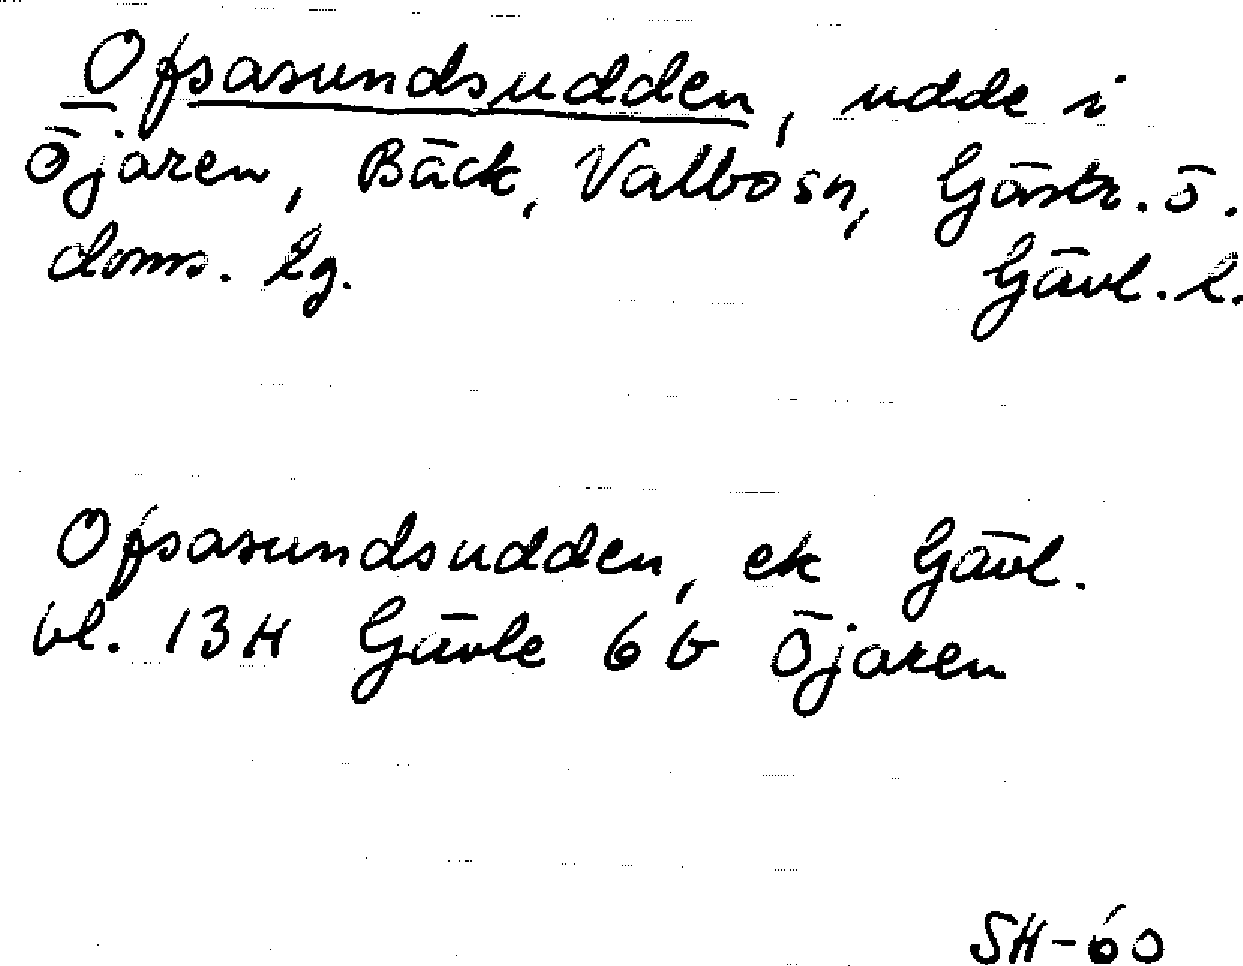 Ofsasundsudden, udde i
Öjaren, Bäck, Valbo sn, Gästr. ö.
doms. lg. Gävl. l.
Ofsasundsudden, ek Gävl.
bl. 13H Gävle 6b Öjaren
SH-60